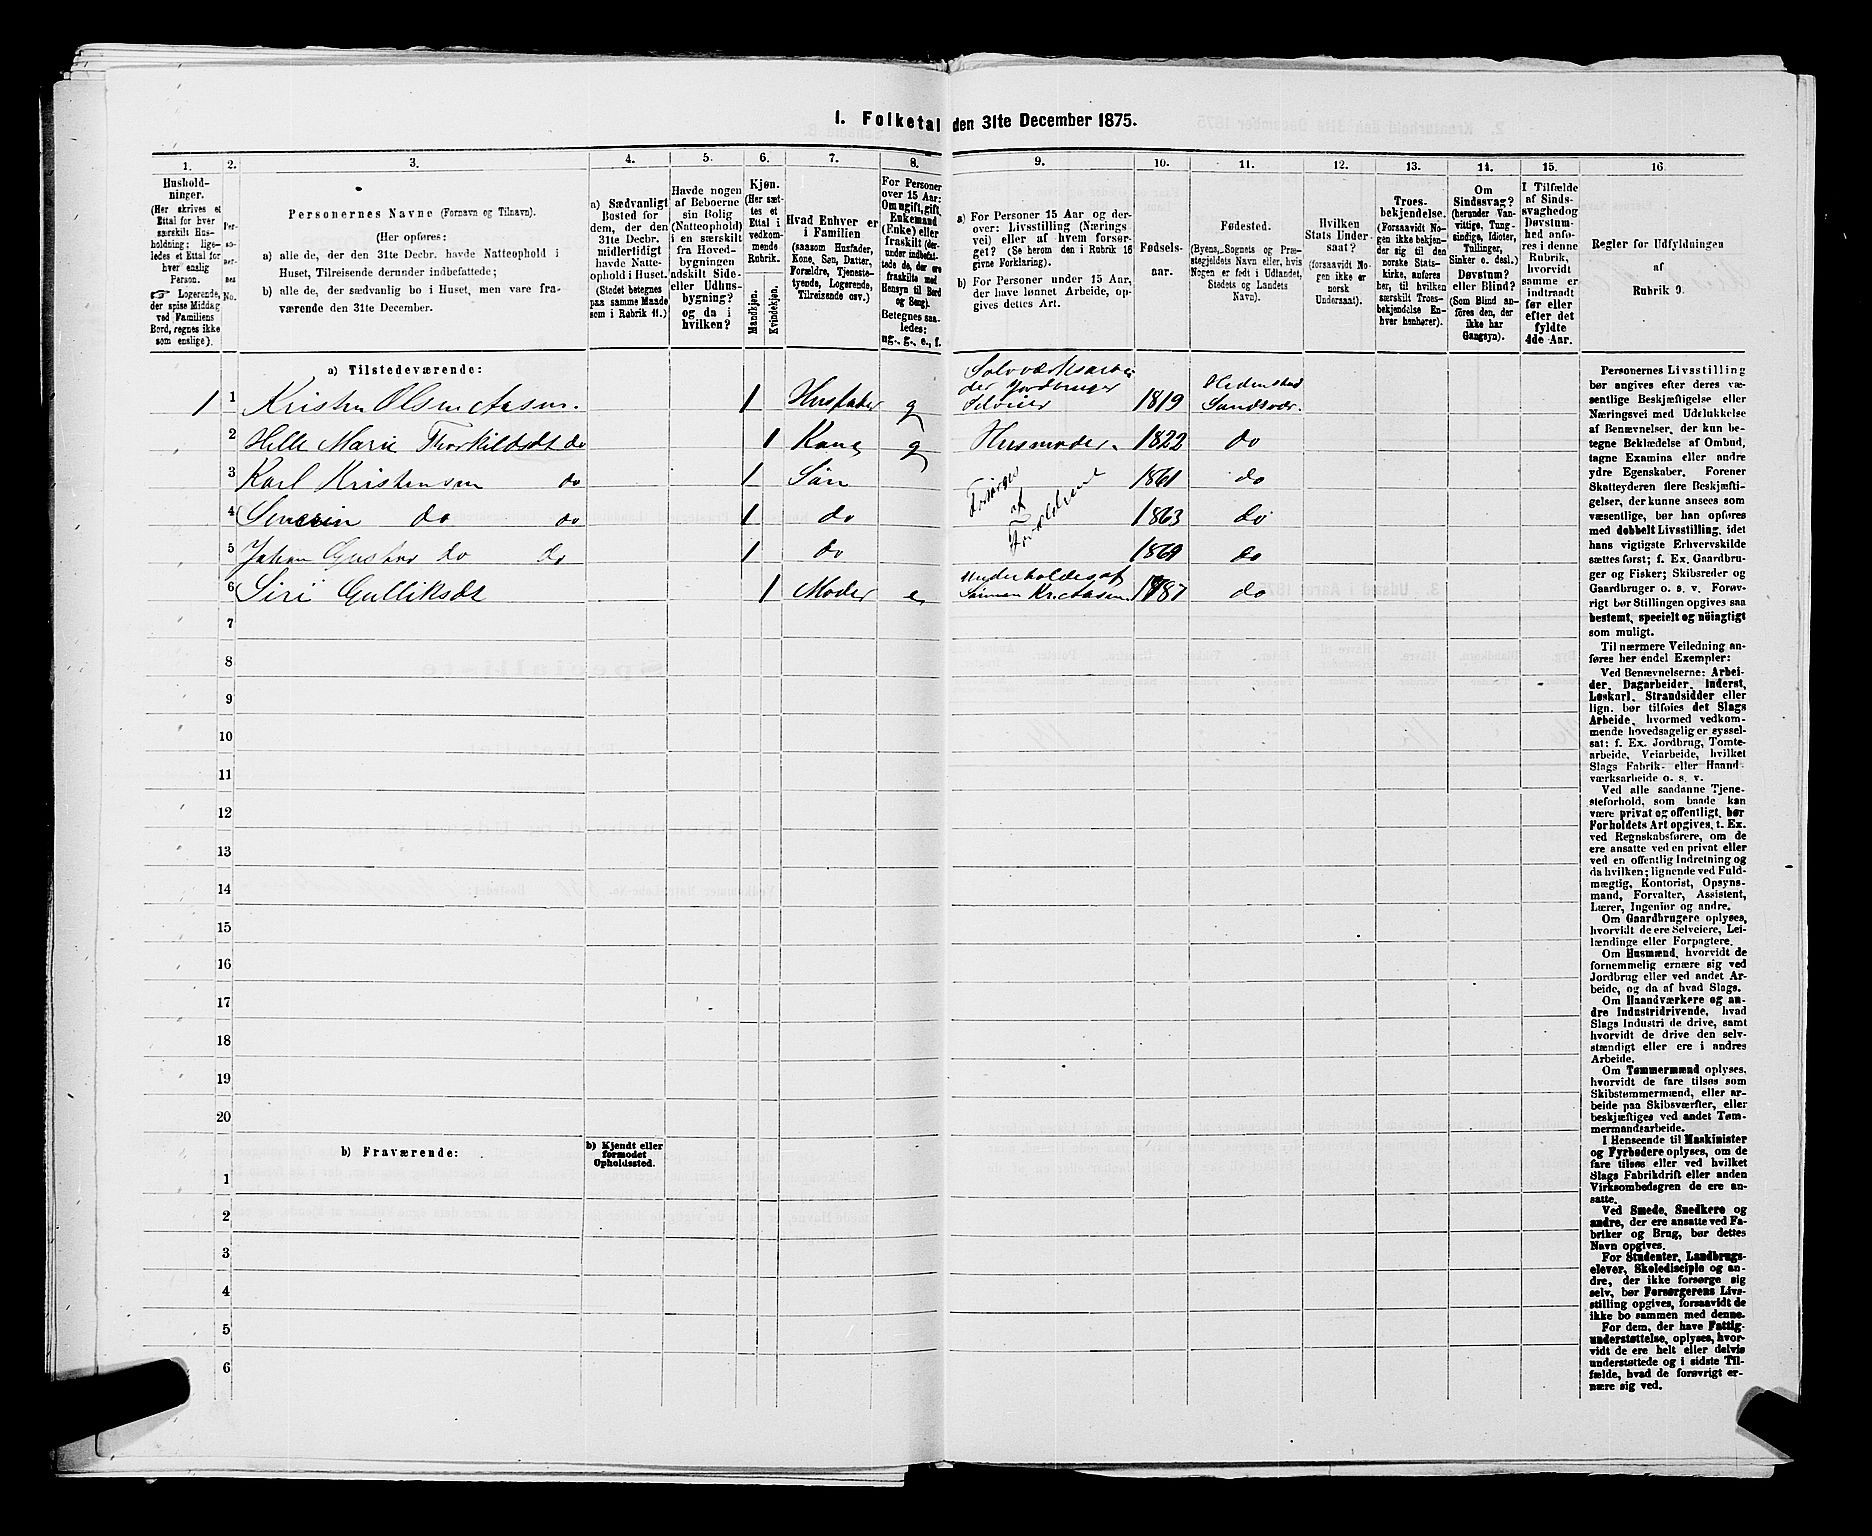 1. Folketal den 31te December 1875.
1.
2.
3.
4.
5.
6.
7.
8.
9.
10.
11.
12.
13.
14.
15.
16.
Hushold-
ninger.
(Her skrives et
Ettal for hver
særskilt Hus-
holdning; lige-
ledes et Ettal for
hver enslig
Person.
☞ Logerende,
der spise Middag
ved Familiens
Bord, regnes ikke
som enslige).
Per-
so-
ner-
nes
No.
Personernes Navne (Fornavn og Tilnavn).
(Her opføres:
a) alle de, der den 31te Decbr. havde Natteophold i
Huset, Tilreisende derunder indbefattede;
b) alle de, der sædvanlig bo i Huset, men vare fra-
værende den 31te December.
a) Sædvanligt
Bosted for
dem, der den
31te Decbr.
midlertidigt
havde Natte-
ophold i Huset.
(Stedet betegnes
paa samme Maade
som i Rubrik 11.)
Havde nogen
af Beboerne
sin Bolig
(Natteophold)
i en særskilt
fra Hoved-
bygningen
adskilt Side-
eller Udhus-
bygning?
og da i
hvilken?
Kjøn.
(Her sæt-
tes et
Ettal i
vedkom-
mende
Rubrik.
Mandkjøn.
Kvindekjøn.
Hvad Enhver er
i Familien
(saasom Husfader,
Kone, Søn, Datter,
Forældre, Tjeneste-
tyende, Logerende,
Tilreisende osv.)
For Personer
over 15 Aar:
Om ugift, gift,
Enkemand
(Enke) eller
fraskilt (der-
under indbefat-
tede de, der ere
fraskilte med
Hensyn til Bord
og Seng).
Betegnes saa-
ledes:
ug., g., e., f.
a) For Personer 15 Aar og der-
over: Livsstilling (Nærings-
vei) eller af hvem forsør-
get? (Se herom den i Rubrik 16
givne Forklaring).
b) For Personer under 15 Aar,
der have lønnet Arbeide, op-
gives dettes Art.
Fødsels-
aar.
Fødested.
(Byens, Sognets og Præ-
stegjeldets Navn eller, hvis
Nogen er født i Udlandet,
Stedets og Landets
Navn).
Hvilken
Stats Under-
saat?
(forsaavidt No-
gen ikke er
norsk
Undersaat).
Troes-
bekjendelse.
(Forsaavidt No-
gen ikke bekjen-
der sig til den
norske Stats-
kirke, anføres
her, til hvilken
særskilt Troes-
bekjendelse En-
hver henhører).
Om
Sindssvag?
(herunder Van-
vittige, Tung-
sindige, Idioter,
Tullinger,
Sinker o. desl.)
Døvstum?
eller Blind?
(Som Blind an-
føres den, der
ikke har
Gangsyn).
I Tilfælde
af Sinds-
svaghed og
Døvstum-
hed anfø-
res i denne
Rubrik,
hvorvidt
samme er
indtraadt
før eller
efter det
fyldte
4de Aar.
Regler for Udfyldningen
af
Rubrik 9.
a) Tilstedeværende:
1 1 Kristen Olsen Aasen. 1 Husfader g Sølvværksarbei
der Jordbruger
Selveier 1819 Hedenstad
Sandsvær.
2 Helle Marie Thorkildsdt do 1 Kone g Husmoder 1822 do
3 Karl Kristensen do 1 Søn Forsørges 1861 do
4 Severin do do 1 do af 1863 do
5 Johan Gustav do do 1 do Forældrene do
6 Siri Gulliksdt 1 Moder e Underholdes af
Sønnen Kr. Aasen. 1787 do
7
8
9
10
11
12
13
14
15
16
17
18
19
20
b) Fraværende:
b) Kjendt eller
formodet
Opholdssted.
1
2
3
4
5
6
Personernes Livsstilling
bør angives efter deres væ-
sentlige Beskjæftigelse eller
Næringsvei med Udelukkelse
af Benævnelser, der kun be-
tegne Beklædelse af Ombud,
tagne Examina eller andre
ydre Egenskaber. Forener
Skatteyderen flere Beskjæfti-
gelser, der kunne ansees som
væsentlige, bør han opføres
med dobbelt Livsstilling, idet
hans vigtigste Erhvervskilde
sættes først; f. Ex. Gaardbru-
ger og Fisker; Skibsreder og
Gaardbruger o. s. v. Forøv-
rigt bør Stillingen opgives saa
bestemt, specielt og nöiagtigt
som muligt.
Til nærmere Veiledning an-
føres her endel Exempler:
Ved Benævnelserne: Arbei-
der, Dagarbeider, Inderst,
Løskarl, Strandsidder eller
lign. bør tilføies det Slags
Arbeide, hvormed vedkom-
mende hovedsagelig er syssel-
sat: f. Ex. Jordbrug, Tomte-
arbeide, Veiarbeide, hvilket
Slags Fabrik- eller Haand-
værksarbeide o. s. v.
Ved alle saadanne Tjene-
steforhold, som baade kan
være privat og offentligt, bør
Forholdets Art opgives, t. Ex.
ved Regnskabsførere, om de
ere ansatte ved en privat eller
ved en offentlig Indretning og
da hvilken; lignende ved Fuld-
mægtig, Kontorist, Opsyns-
mand, Forvalter, Assistent,
Lærer, Ingeniør og andre.
Om Gaardbrugere oplyses,
hvorvidt de ere Selveiere, Lei-
lændinge eller Forpagtere.
Om Husmænd, hvorvidt de
fornemmelig ernære sig ved
Jordbrug eller ved andet Ar-
beide, og da af hvad Slags.
Om Haandværkere og an-
dre Industridrivende, hvad
Slags Industri de drive, samt
hvorvidt de drive den selv-
stændigt eller ere i andres
Arbeide.
Om Tømmermænd oplyses,
hvorvidt de fare tilsøs som
Skibstømmermænd, eller ar-
beide paa Skibsværfter, eller
beskjæftiges ved andet Tøm-
mermandsarbeide.
I Henseende til Maskinister
og Fyrbødere oplyses, om de
fare tilsøs eller ved hvilket
Slags Fabrikdrift eller anden
Virksomhedsgren de ere an-
satte.
Ved Smede, Snedkere og
andre, der ere ansatte ved Fa-
briker og Brug, bør dettes
Navn opgives.
For Studenter, Landbrugs-
elever, Skoledisciple og an-
dre, der ikke forsørge sig
selv, bør Forsørgerens Livs-
stilling opgives, forsaavidt de
ikke bo sammen med denne.
For dem, der have Fattig-
understøttelse, oplyses, hvor-
vidt de ere helt eller delvis
understøttede og i sidste Til-
fælde, hvad de forøvrigt er-
nære sig ved.